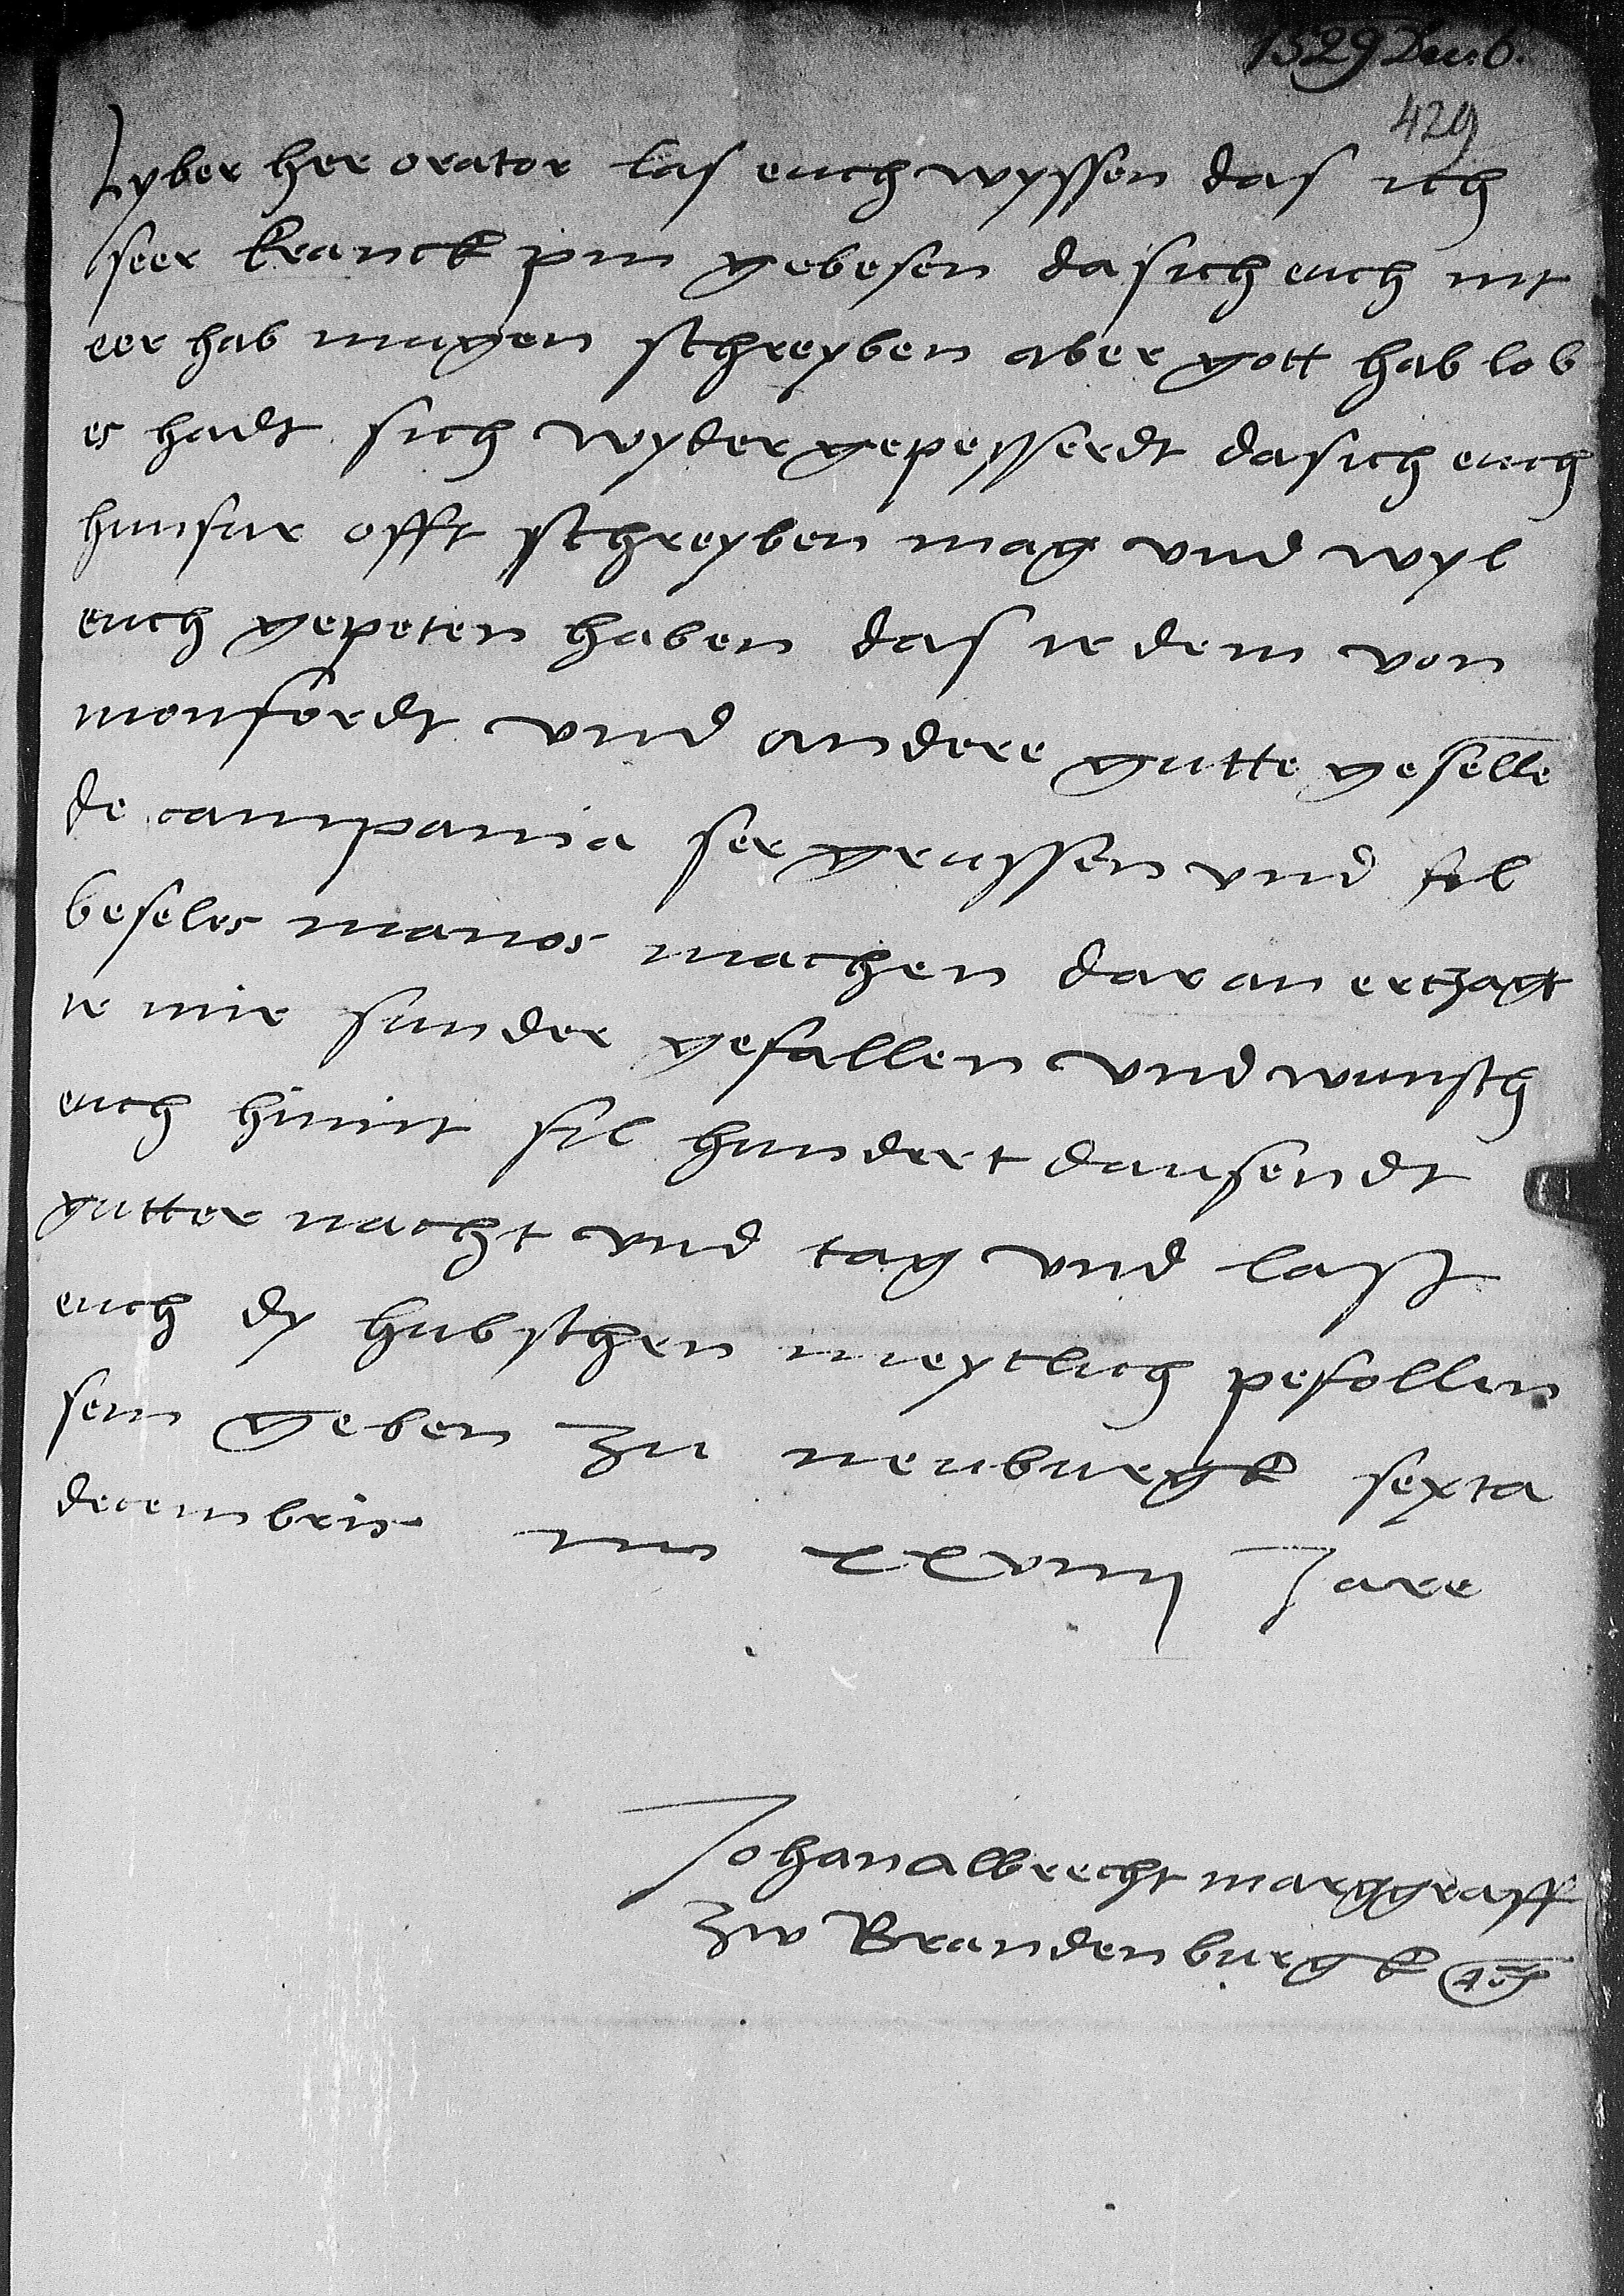 1529 Dec. 6.
429
Lyber her orator las euch wyssen das ich
seer kranck pin gebesen das ich euch nit
eer hab mugen schreyben aber gott hab lob
es hadt sich wyder gepesserdt das ich euch
hinfur offt schreyben mag vnd wyl
euch gepeten haben das ir dem von
monfordt vnd andere gutte geselle
de campania ser grussen vnd fil
beseles manos machen daran ertzagt
ir mir sunder gefallen vnd wunsch
euch hinnit fil hundert dausendt
gutter nacht vnd tag vnd last
euch dy hubschen meytlich pefollen
sein geben zu neuburgk sexta
decembris im xxviiij Jare
Johan albrecht marggraff
zw Brandenburgk